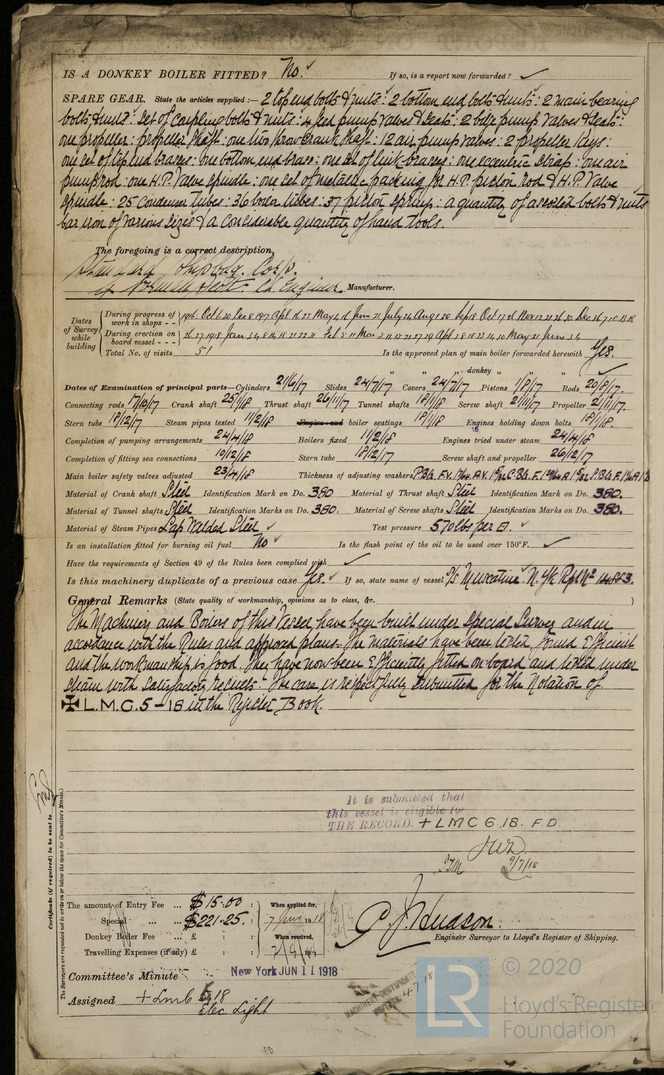 IS A DONKEY BOILER FITTED? No. ✓ If so, is a report now forwarded? ✓
SPARE GEAR. State the articles supplied:— 2 top end bolts & nuts: 2 bottom end bolts & nuts: 2 main bearing
bolts & nuts: set of coupling bolts & nuts: 4 feed pump valves & seats: 2 bilge pump valves & seats:
one propeller: propeller shaft: one crank shaft: 12 air pump valves: 2 propeller keys:
one set of top end brasses: one bottom end brass: one set of link brasses: one eccentric strap: one air
pump rod: one H.P. Valve spindle: one set of metallic packing for H.P. piston rod & H.P. Valve
spindle: 25 Condenser tubes: 36 boiler tubes: 37 piston springs: a quantity of assorted bolts & nuts
bar iron of various sizes & a considerable quantity of hand tools.
The foregoing is a correct description,
Shipbdg. Corp.
Ch Engineer. Manufacturer.
Dates of Survey while building
During progress of work in shops - -
During erection on board vessel - - -
Total No. of visits 51 Is the approved plan of main boiler forwarded herewith Yes.
" " " donkey " " "
Dates of Examination of principal parts—Cylinders 21/6/17 Slides 24/7/17 Covers 24/7/17 Pistons 1/8/17 Rods 20/8/17.
Connecting rods 17/10/17 Crank shaft 25/1/18 Thrust shaft 26/11/17 Tunnel shafts 18/1/18 Screw shaft 2/11/17 Propeller 2/11/17.
Stern tube 18/12/17 Steam pipes tested 11/2/18 Engine and boiler seatings 18/1/18 Engines holding down bolts 18/1/18
Completion of pumping arrangements 24/4/18 Boilers fixed 11/2/18 Engines tried under steam 24/4/18
Completion of fitting sea connections 10/12/18 Stern tube 18/12/17 Screw shaft and propeller 26/12/17
Main boiler safety valves adjusted 23/4/18 Thickness of adjusting washers
Material of Crank shaft Steel Identification Mark on Do. 380 Material of Thrust shaft Steel Identification Mark on Do. 380.
Material of Tunnel shafts Steel Identification Marks on Do. 380. Material of Screw shafts Steel Identification Marks on Do. 380.
Material of Steam Pipes Lap Welded Steel ✓ Test pressure 570 lbs per □. ✓
Is an installation fitted for burning oil fuel No ✓ Is the flash point of the oil to be used over 150°F. ✓
Have the requirements of Section 49 of the Rules been complied with ✓
Is this machinery duplicate of a previous case Yes. ✓ If so, state name of vessel S/S Muscatine. N.Yk Rpt No 14883.
General Remarks (State quality of workmanship, opinions as to class, &c.
The Machinery and Boilers of this Vessel have been built under Special Survey and in
accordance with the Rules and approved plans. The materials have been tested, found efficient
and the workmanship is good. They have now been efficiently fitted on board and tested under
steam with satisfactory results. The case is respectfully submitted for the Notation of
✠ L.M.C. 5-18 in the Register Book.
It is submitted that
this vessel is eligible for
THE RECORD. + LMC 6.18. F.D.
9/7/18
Certificate (if required) to be sent to
(The Surveyors are requested not to write on or below the space for Committee's Minute.)
The amount of Entry Fee ... $15.00 : When applied for,
Special ... $221.25. : 7 June 1918
Donkey Boiler Fee ... £ : : When received,
Travelling Expenses (if any) £ : :
C. J. Hudson.
Engineer Surveyor to Lloyd's Register of Shipping.
Committee's Minute New York JUN 11 1918
Assigned + Lmc 6.18
Elec. Light
MACHINERY CERTIFICATE
WRITTEN 4.7.18
LR © 2020
Lloyd's Register
Foundation